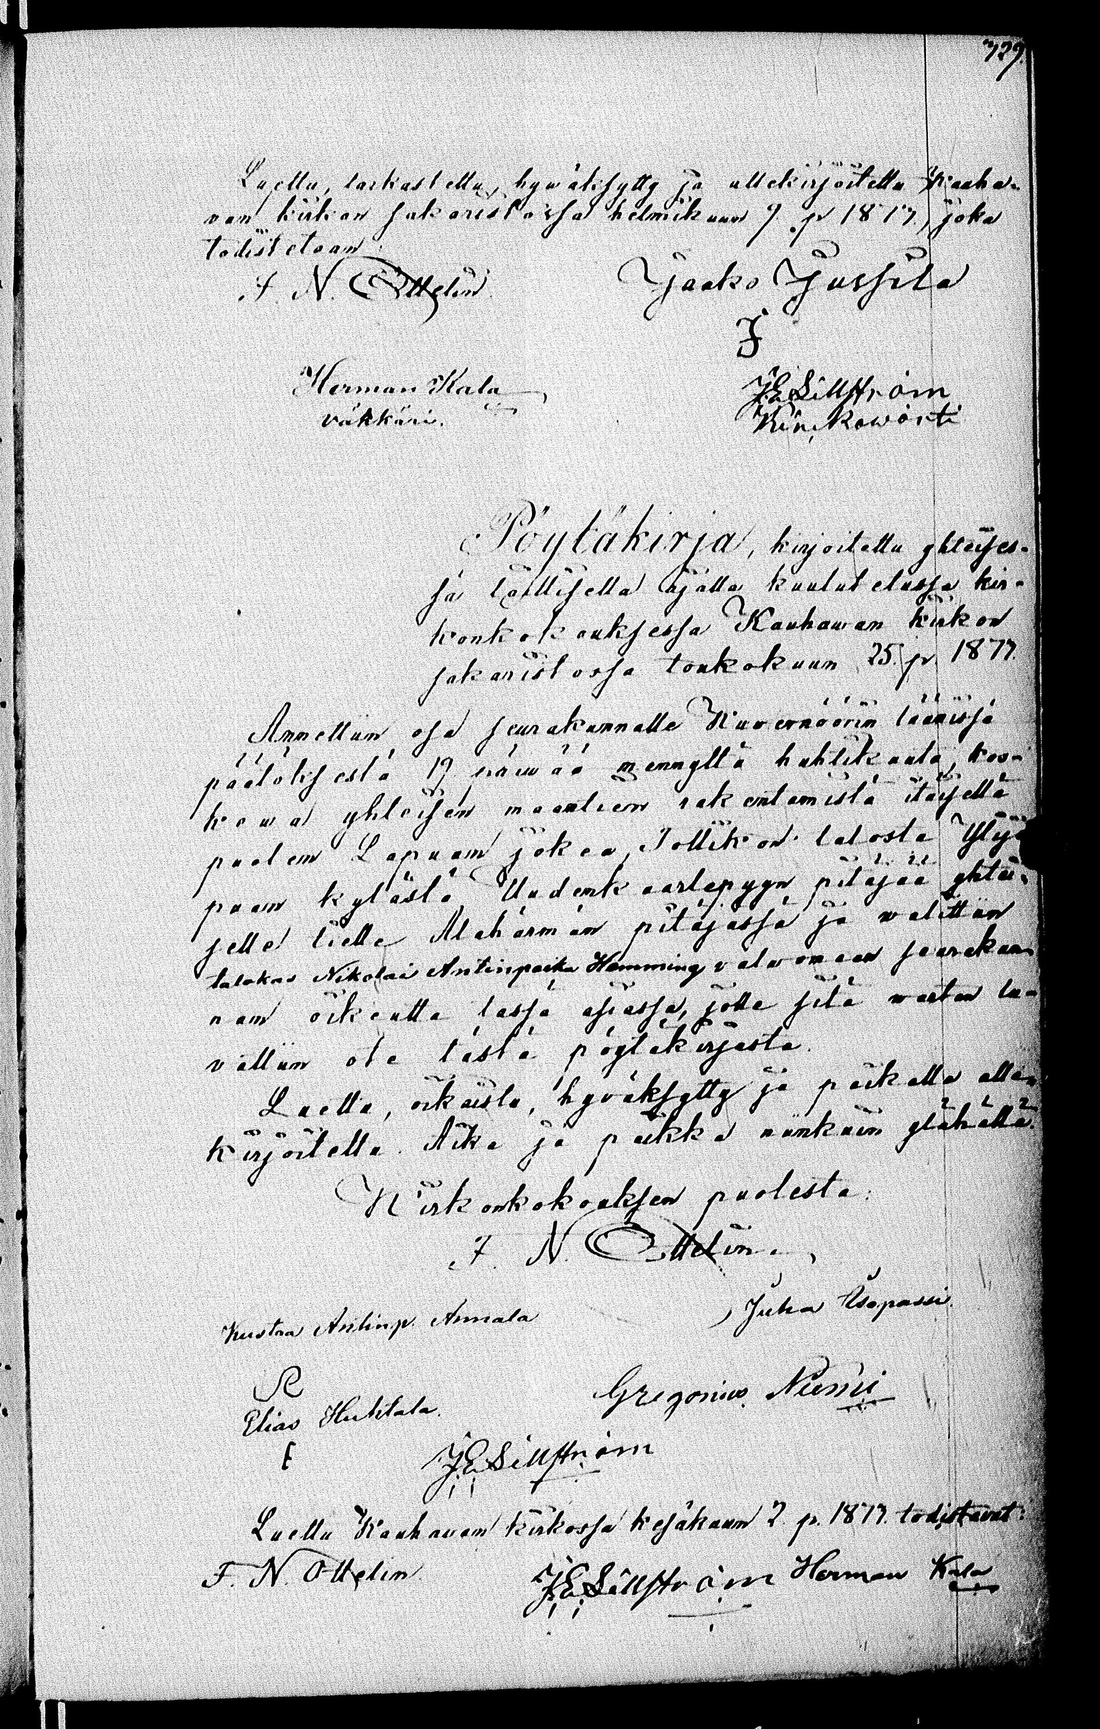 729.
Luettu, tarkastettu, hywäksytty ja allekirjoitettu Kauha-
van kirkon sakaristossa helmikuun 9. p 1877, joka
todistetaan:
F. N. Ottelin. Jaako Jussila
Herman Kala JE Sillström
väkkäri.
Pöytäkirja, kirjoitettu yhteises-
sä laillisella ajalla kuulutetussa kir-
konkokouksessa Kauhawan kirkon
sakaristossa toukokuun 25. p. 1877.
Annettiin osa seurakunnalle Kuvernöörin läänissä
päätöksestä 19 päiwää mennyttä huhtikuuta, kos-
kewa yhteisen maantien rakentamista itäisellä
puolen Lapuan jokea, talosta Yliji
puan kylästä Uudenkaarlepyyn pitäjää yhtei-
selle tielle Alahärmän pitäjässä ja walittiin
talokas Nikolai Antinpoika Hemming valvomaan seurakun-
nan oikeutta tässä asiassa, jotta sitä warten an-
nettiin ote tästä pöytäkirjasta.
Luettu, oikaistu, hyväksytty ja paikalla alle-
kirjoitettu. Aika ja paikka niinkuin ylähällä.
Kirkonkokouksen puolesta:
F. N. Ottelin.
Kustaa Antinp. Annala Juha
Elias Huhtala. Gregorius Niemi
JE Sillström
Luettu Kauhavan kirkossa kesäkuun 2 p. 1877. todistavat:
F. N. Ottelin. JE Sillström Herman Kala